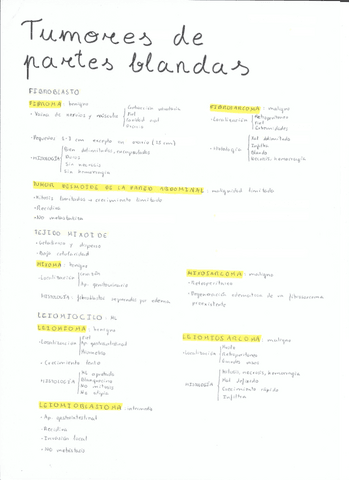 Tumores de
partes blandas
FIBROBLASTO
FIBROMA: benigno
- Vaina de nervios y músculo
Piel
Cavidad oral
Ovario
- Pequeños 2-3 cm excepto en ovario
- HISTOLOGÍA
Bien delimitados, encapsulados
Duros
Sin necrosis
Sin hemorragia
FIBROSARCOMA: maligno
- Localización
Retroperitoneo
Piel
Extremidades
- Histología
Mal delimitado
Infiltra
Blando
Necrosis, hemorragia
TUMOR DESMOIDE DE LA PARED ABDOMINAL: malignidad limitada
- Mitosis limitadas o crecimiento limitado
- Recidiva
- NO metastatiza
TEJIDO MIXOIDE
- Gelatinoso y disperso
- Baja celularidad
MIXOMA: benigno
- Localización
Corazón
Ap. genitourinario
HISTOLOGÍA: fibroblastos separados por edema
MIXOSARCOMA: maligno
- Retroperitoneo
- Degeneración mixomatosa de un fibrosarcoma
preexistente
LEIOMIOCITO: ML
LEIOMIOMA: benigno
- Localización
Piel
Ap. gastrointestinal
- Crecimiento lento
HISTOLOGÍA
Blanquecino
No mitosis
No atipia
LEIOMIOSARCOMA: maligno
- Localización
Retroperitoneo
Grandes vasos
HISTOLOGÍA
necrosis, hemorragia
Mal definido
Crecimiento rápido
Infiltra
LEIOMIOBLASTOMA: intermedio
- Ap. gastrointestinal
- Recidiva
- Invasión local
- NO metástasis